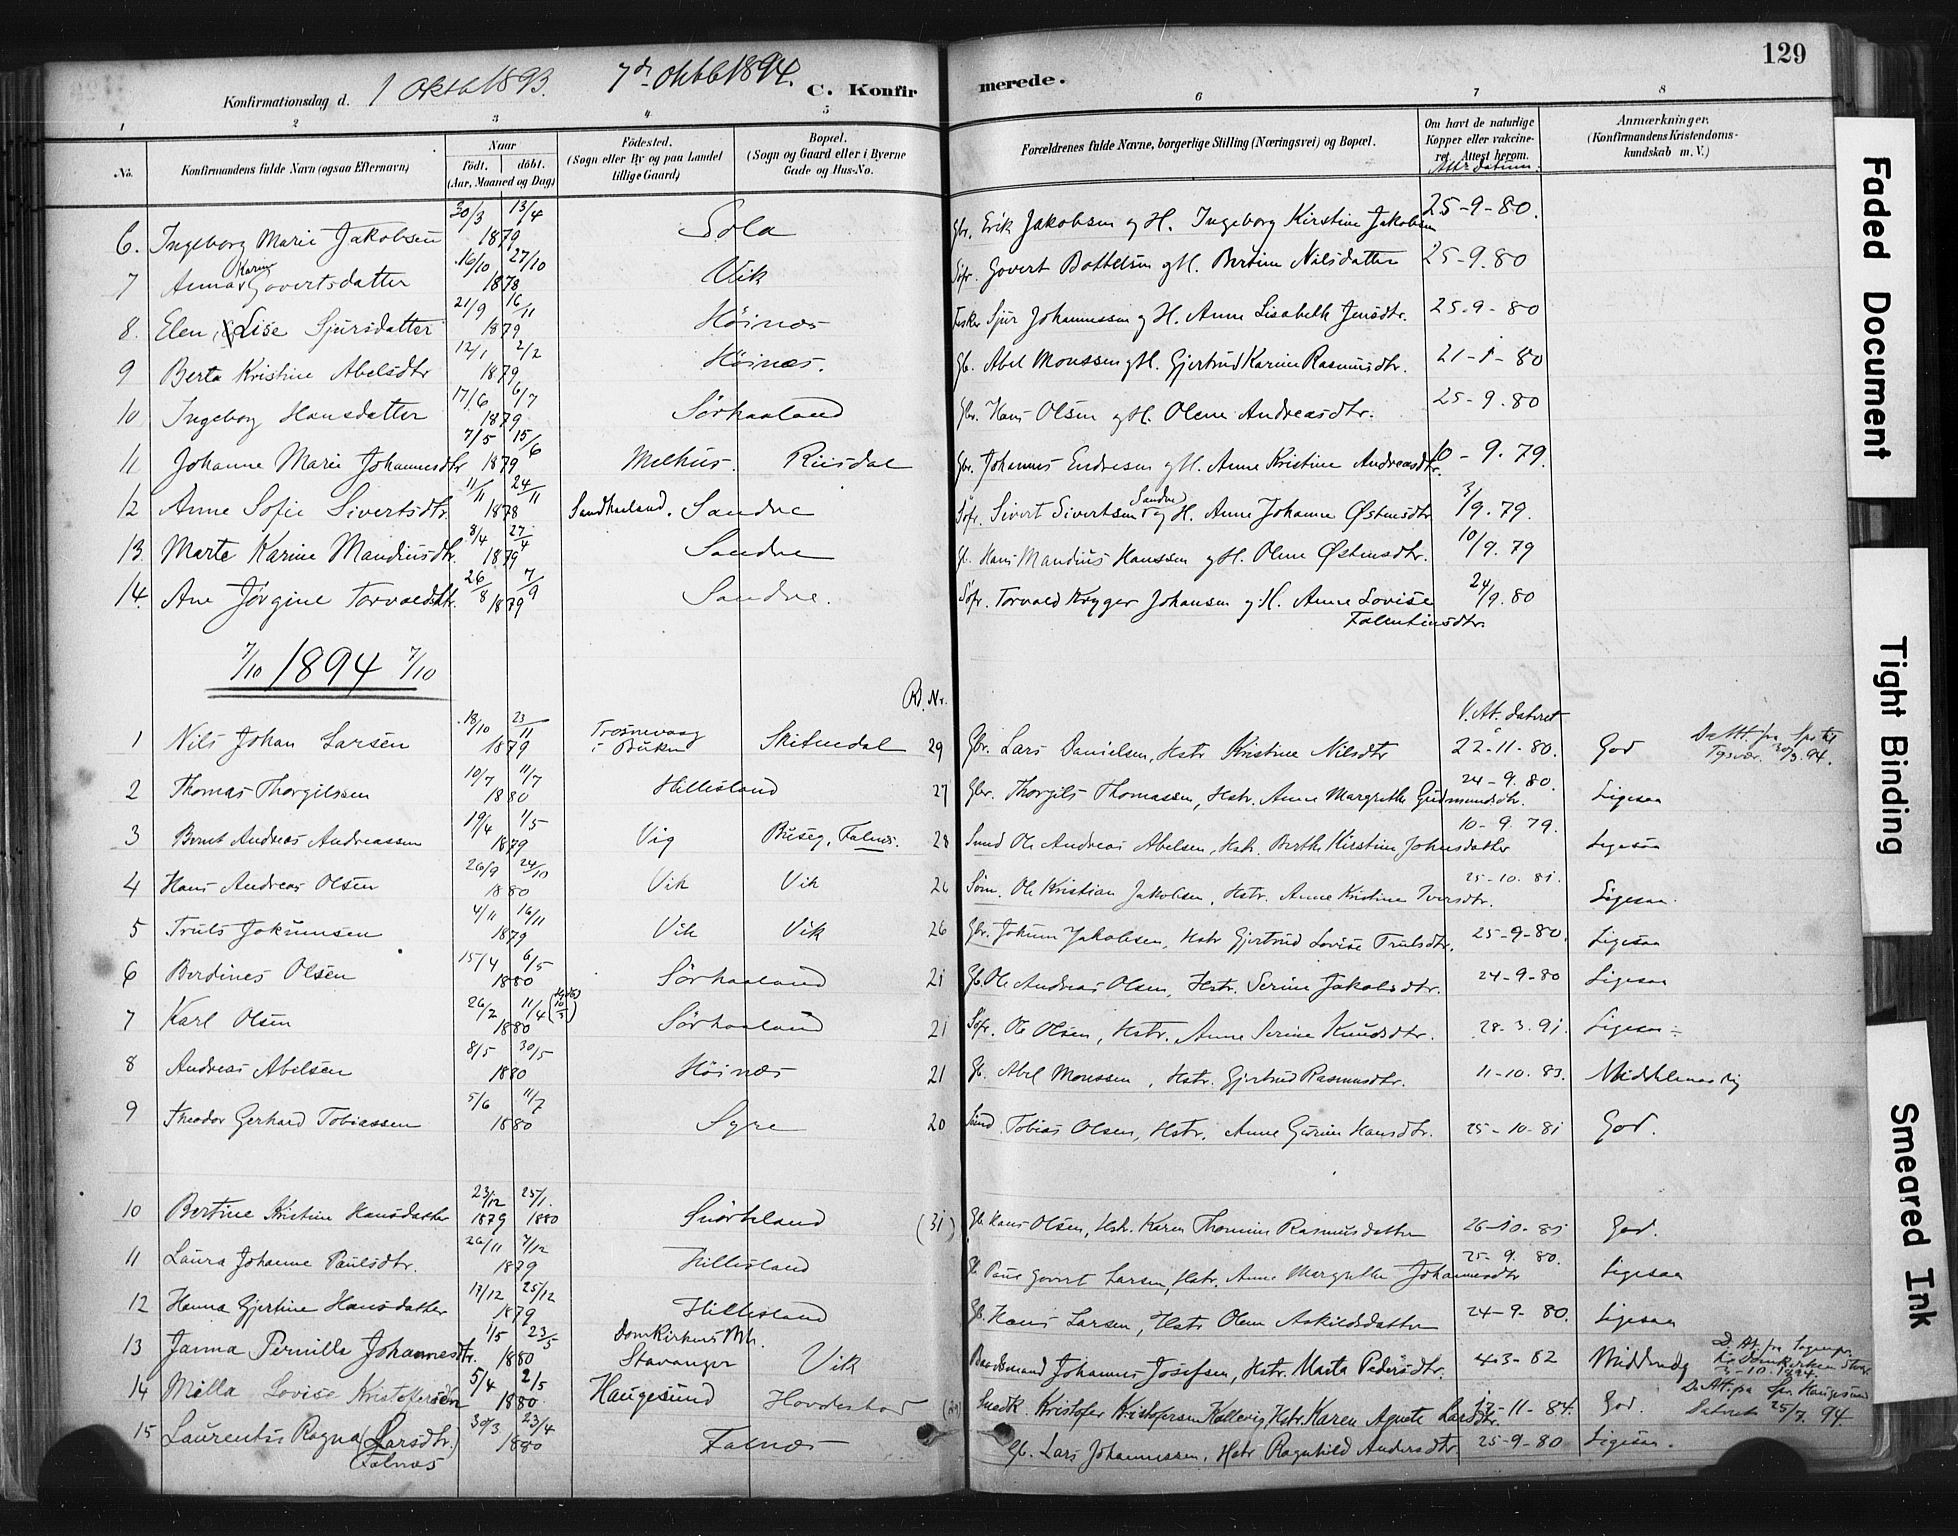 129
Konfirmationsdag d. 1 Oktb 1893. 7de Oktb 1894. C. Konfirmerede.
1 2 3 4 5 6 7 8
No. Konfirmandens fulde Navn (ogsaa Efternavn) Naar født. døbt. (Aar, Maaned og Dag) Fødested. (Sogn eller By og paa Landet tillige Gaard) Bopæl. (Sogn og Gaard eller i Byerne Gade og Hus-No. Forældrenes fulde Navne, borgerlige Stilling (Næringsvei) og Bopæl. Om havt de naturlige Kopper eller vakcineret. Attest herom. Anmærkninger. (Konfirmandens Kristendomskundskab m. V.)
Att. datum.
6. Ingeborg Marie Jakobsen 30/3 13/4 1879 Sola Gbr. Erik Jakobsen og H. Ingeborg Kirstine Jakobsen 25-9-80.
7 Anna Karine Govertsdatter 16/10 27/10 1878 Vik Søfr. Govert Bottelsen og H. Bertine Nilsdatter 25-9.80
8. Elen Lise Sjursdatter 21/9 16/11 1879 Høinæs Fisker Sjur Johannessen og H. Anne Lisabeth Jensdtr. 25-9-80
9 Berta Kristine Abelsdtr 12/1 2/2 1879 Høinæs. Gb. Abel Monssen og H. Gjertrud Karine Rasmusdtr. 21-1-80
10 Ingeborg Hansdatter 17/6 6/7 1879 Sørhaaland Gbr. Hans Olsen og H. Olene Andreasdtr. 25-9.80
11 Johanne Marie Johannesdtr 7/5 15/6 1879 Melhus. Riisdal Gbr. Johannes Endresen og H. Anne Kristine Andreasdtr. 10-9.79.
12 Anne Sofie Sivertsdtr. 11/11 24/11 1878 Sandhaaland. Sandve Søfr. Sivert Sivertsen Sandve og H. Anne Johanne Østensdtr 3/9.79.
13. Marte Karine Mandiusdtr. 8/4 27/4 1879 Sandve G. Hans Mandius Hanssen og H. Olene Østensdtr. 10/9.79
14. Ane Jørgine Torvaldsdtr. 26/8 7/9 1879 Sandve. Søfr. Torvald Kryger Johansen og H. Anne Lovise Falentinsdtr. 24/9.80
7/10 1894 7/10
R. Nr. V. At. dateret
1 Nils Johan Larsen 18/10 23/11 1879 Trosnevaag i Bukn Skitendal 29 Gbr. Lars Danielsen, Hstr Kristine Nilsdtr 22-11-80. God Da Att. fra Spr. til Tysvær 30/3.94.
2 Thomas Thorgilssen 10/7 11/7 1880 Hillesland 27 Gbr. Thorgils Thomassen, Hstr. Anne Margrethe Gudmundsdtr. 24-9.80. Ligesaa
3 Bernt Andreas Andreassen 19/4 1/5 1879 Vig Buseg, Falnes. 28 Smed Ole Andreas Abelsen, Hstr. Berthe Kirstine Johnsdatter 10-9.79. Ligesaa
4 Hans Andreas Olsen 26/9 24/10 1880 Vik Vik 26 Søm. Ole Kristian Jakobsen, Hstr. Anne Kristine Iversdtr. 25-10.81. Ligesaa.
5 Truls Jokumsen 4/11 16/11 1879 Vik Vik 26 Gbr. Jokum Jakobsen, Hstr Gjertrud Lovise Trulsdtr. 25-9-80. Ligesaa
6 Berdines Olsen 15/4 6/5 1880 Sørhaaland 21 Gb. Ole Andreas Olsen, Hstr. Serine Jakobsdtr. 24-9-80 Ligesaa
7 Karl Olsen 26/2 11/4 1880 Sørhaaland 21 Søfr. Ole Olsen, Hstr. Anne Serine Knudsdtr. 28-3.91. Ligesaa
8 Andreas Abelsen 8/5 30/5 1880 Høinæs 21 Gb. Abel Monssen, Hstr. Gjertrud Rasmusdtr. 11-10.83. Middelmaadig
9 Theodor Gerhard Tobiassen 5/6 11/7 1880 Syre 20 Smed Tobias Olsen, Hstr. Anne Gurine Hansdtr. 25-10-81 God.
10 Bertine Kristine Hansdatter 23/12 1879 25/1. 1880 Snørteland (31) Gb. Hans Olsen, Hstr. Karen Thomine Rasmusdatter 26-10-81 God.
11 Laura Johanne Paulsdtr. 26/11 7/12 1879 Hillesland G. Paul Govert Larsen, Hstr. Anne Margrethe Johannesdtr 25-9.80. Ligesaa
12 Hanna Gjertine Hansdatter 17/12 25/12 1879 Hillesland Gb. Hans Larsen, Hstr Olene Askildsdatter 24-9-80. Ligesaa
13 Janna Pernille Johannesdtr. 1/5 23/5 1880 Domkirkens Mh. Stavanger Vik Baadsmand Johannes Josefsen, Hstr. Marta Pedersdtr. 4-3-82 Middmdg D. At. fra Sognepr. til Domkirken Stvgr. 3-10.1894.
14 Milla Lovise Kristofersdtr 5/4 2/5 1880 Haugesund Hovdestad Snedk. Kristofer Kristofersen Kallevig, Hstr. Karen Agnete Larsdtr. 12-11-84. God. D. Att. fra Spr. Haugesund Dateret 25/7 94
15 Laurentse Ragna (Larsdtr.) (Falnæs 30/3 23/4 1880 Falnæs Gb. Lars Johannessen, Hstr Ragnhild Andersdtr. 25-9-80 Ligesaa.
Faded Document
Tight Binding
Smeared Ink